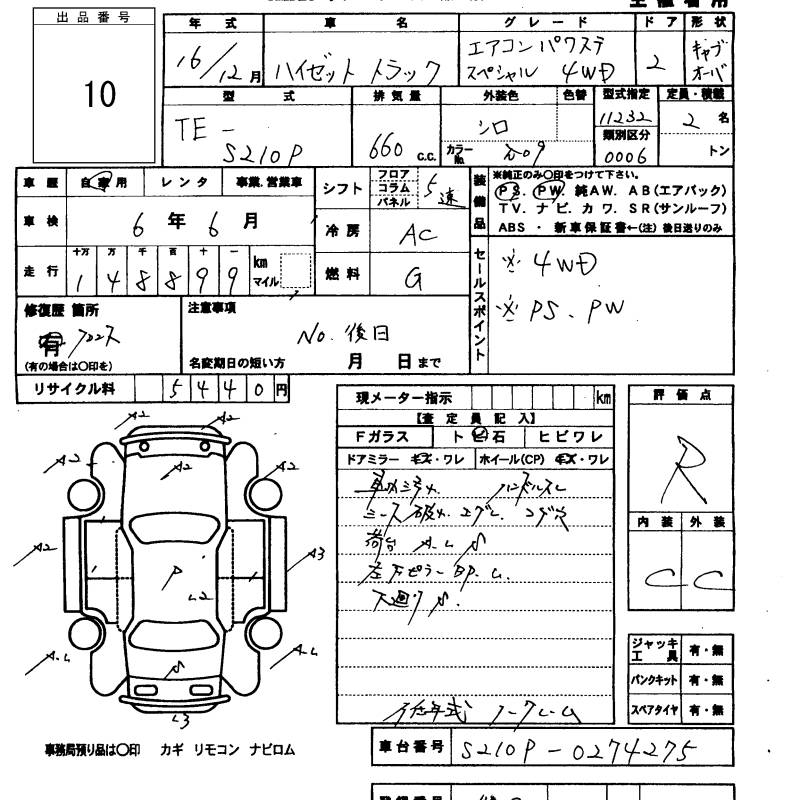 出品番号
10
年式 車名 グレード ドア 形状
16/12月 ハイゼット トラック エアコン パワステ スペシャル 4WD 2 キャブオーバ
型式 排気量 外装色 色替 型式指定 定員・積載
TE-S210P 660 c.c. シロ 11232 2名
カラーNo. 類別区分 トン
0006
車歴 自家用 レンタ 事業.営業車
車検 6年6月
走行 十万 万 千 百 十 一
1 4 8 8 9 9 km マイル
シフト フロア コラム パネル 5速
冷房 AC
燃料 G
装備品 ※純正のみ〇印をつけて下さい。
PS. PW. 純AW. AB(エアバック)
TV. ナビ. カワ. SR(サンルーフ)
ABS ・ 新車保証書←(注) 後日送りのみ
セールスポイント
※ 4WD
※ PS、PW
修復歴 箇所
有
(有の場合は〇印を)
注意事項
No. 後日
名変期日の短い方 月 日まで
リサイクル料 5440円
A2 A2
A2 A2 A2
A2 A3
P
L2
A-L A-L
S
L3
事務局預り品は〇印 カギ リモコン ナビロム
現メーター指示 km
【査定員記入】
Fガラス ト 石 ヒビワレ
ドアミラー キズ・ワレ ホイール(CP) キズ・ワレ
ハンドルスレ
荷台 A.L S
左 ピラー BP. L.
下廻り S.
低年式
評価点
R
内装 外装
C C
ジャッキ工具 有・無
パンクキット 有・無
スペアタイヤ 有・無
車台番号 S210P-0274275